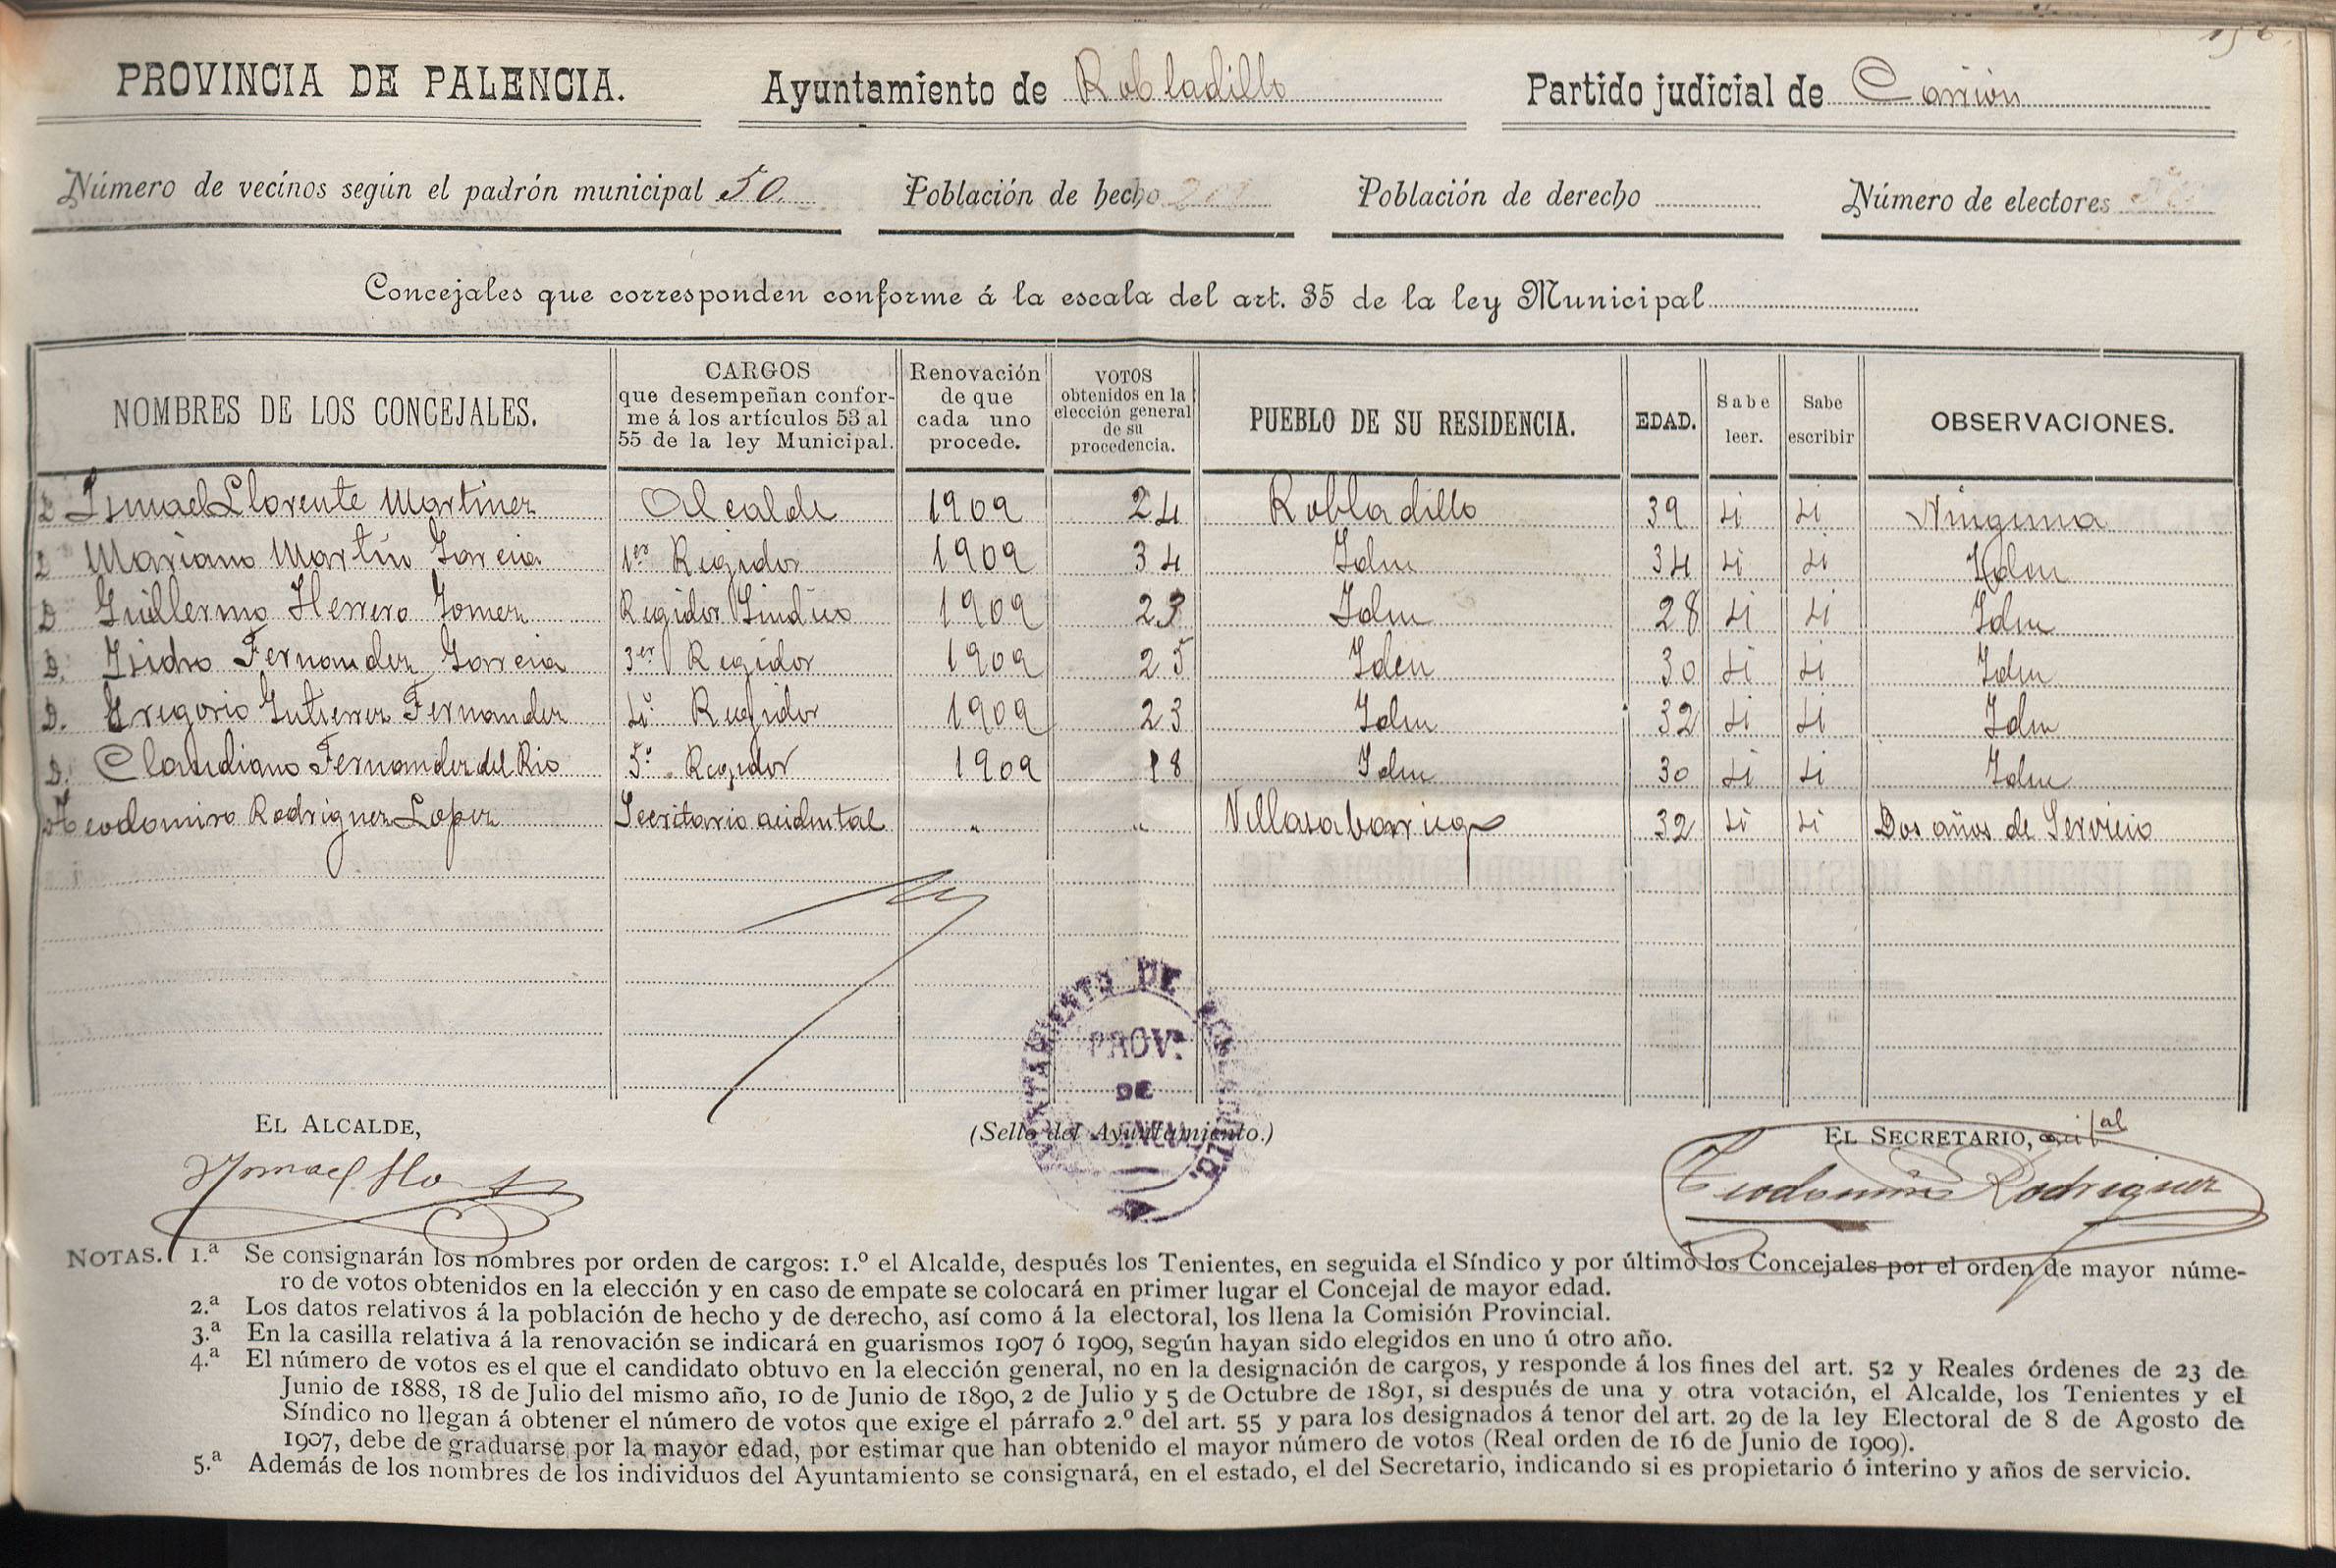 PROVINCIA DE PALENCIA. Ayuntamiento de Robladillo Partido judicial de Carrión
Número de vecinos según el padrón municipal 50. Población de hecho Población de derecho Número de electores
Concejales que corresponden conforme á la escala del art. 35 de la ley Municipal
NOMBRES DE LOS CONCEJALES. CARGOS que desempeñan confor-me á los artículos 53 al 55 de la ley Municipal. Renovación de que cada uno procede. VOTOS obtenidos en la elección general de su procedencia. PUEBLO DE SU RESIDENCIA. EDAD. Sabe leer. Sabe escribir OBSERVACIONES.
D Ismael Llorente Martinez Alcalde 1909 24 Robladillo 39 si si Ninguna
D Mariano Martín Garcia 1er Regidor 1909 34 Idem 34 si si Idem
D Guillermo Herrero Gomez Regidor Sindico 1909 23 Idem 28 si si Idem
D. Isidro Fernandez Garcia 3er Regidor 1909 25 Idem 30 si si Idem
D. Gregorio Gutierrez Fernandez 4º Regidor 1909 23 Idem 32 si si Idem
D. Claudiano Fernandez del Rio 5º Regidor 1909 18 Idem 30 si si Idem
Teodomiro Rodriguez Lopez Secritario acidental " " Villasabariego 32 si si Dos años de Servicio
AYUNTAMIENTO DE ROBLADILLO
PROV.ª
DE
EL ALCALDE, (Sello del Ayuntamiento.) EL SECRETARIO,
Ismael Teodomiro Rodriguez
NOTAS. 1.ª Se consignarán los nombres por orden de cargos: 1.º el Alcalde, después los Tenientes, en seguida el Síndico y por último los Concejales por el orden de mayor núme-
ro de votos obtenidos en la elección y en caso de empate se colocará en primer lugar el Concejal de mayor edad.
2.ª Los datos relativos á la población de hecho y de derecho, así como á la electoral, los llena la Comisión Provincial.
3.ª En la casilla relativa á la renovación se indicará en guarismos 1907 ó 1909, según hayan sido elegidos en uno ú otro año.
4.ª El número de votos es el que el candidato obtuvo en la elección general, no en la designación de cargos, y responde á los fines del art. 52 y Reales órdenes de 23 de
Junio de 1888, 18 de Julio del mismo año, 10 de Junio de 1890, 2 de Julio y 5 de Octubre de 1891, si después de una y otra votación, el Alcalde, los Tenientes y el
Síndico no llegan á obtener el número de votos que exige el párrafo 2.º del art. 55 y para los designados á tenor del art. 29 de la ley Electoral de 8 de Agosto de
1907, debe de graduarse por la mayor edad, por estimar que han obtenido el mayor número de votos (Real orden de 16 de Junio de 1909).
5.ª Además de los nombres de los individuos del Ayuntamiento se consignará, en el estado, el del Secretario, indicando si es propietario ó interino y años de servicio.